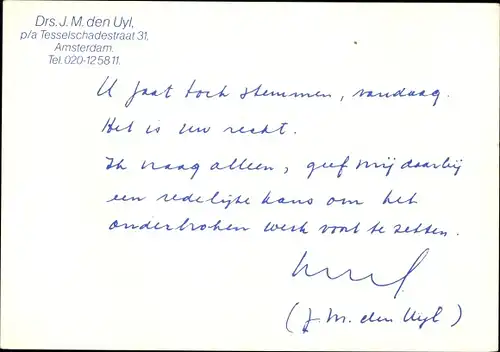 Drs. J. M. den Uyl,
p/a Tesselschadestraat 31,
Amsterdam.
Tel. 020-125811.
U gaat toch stemmen, vandaag.
Het is uw recht.
Ik vraag alleen, geef mij daarbij
een redelijke kans om het
onderbroken werk voort te zetten.
(J. M. den Uyl)